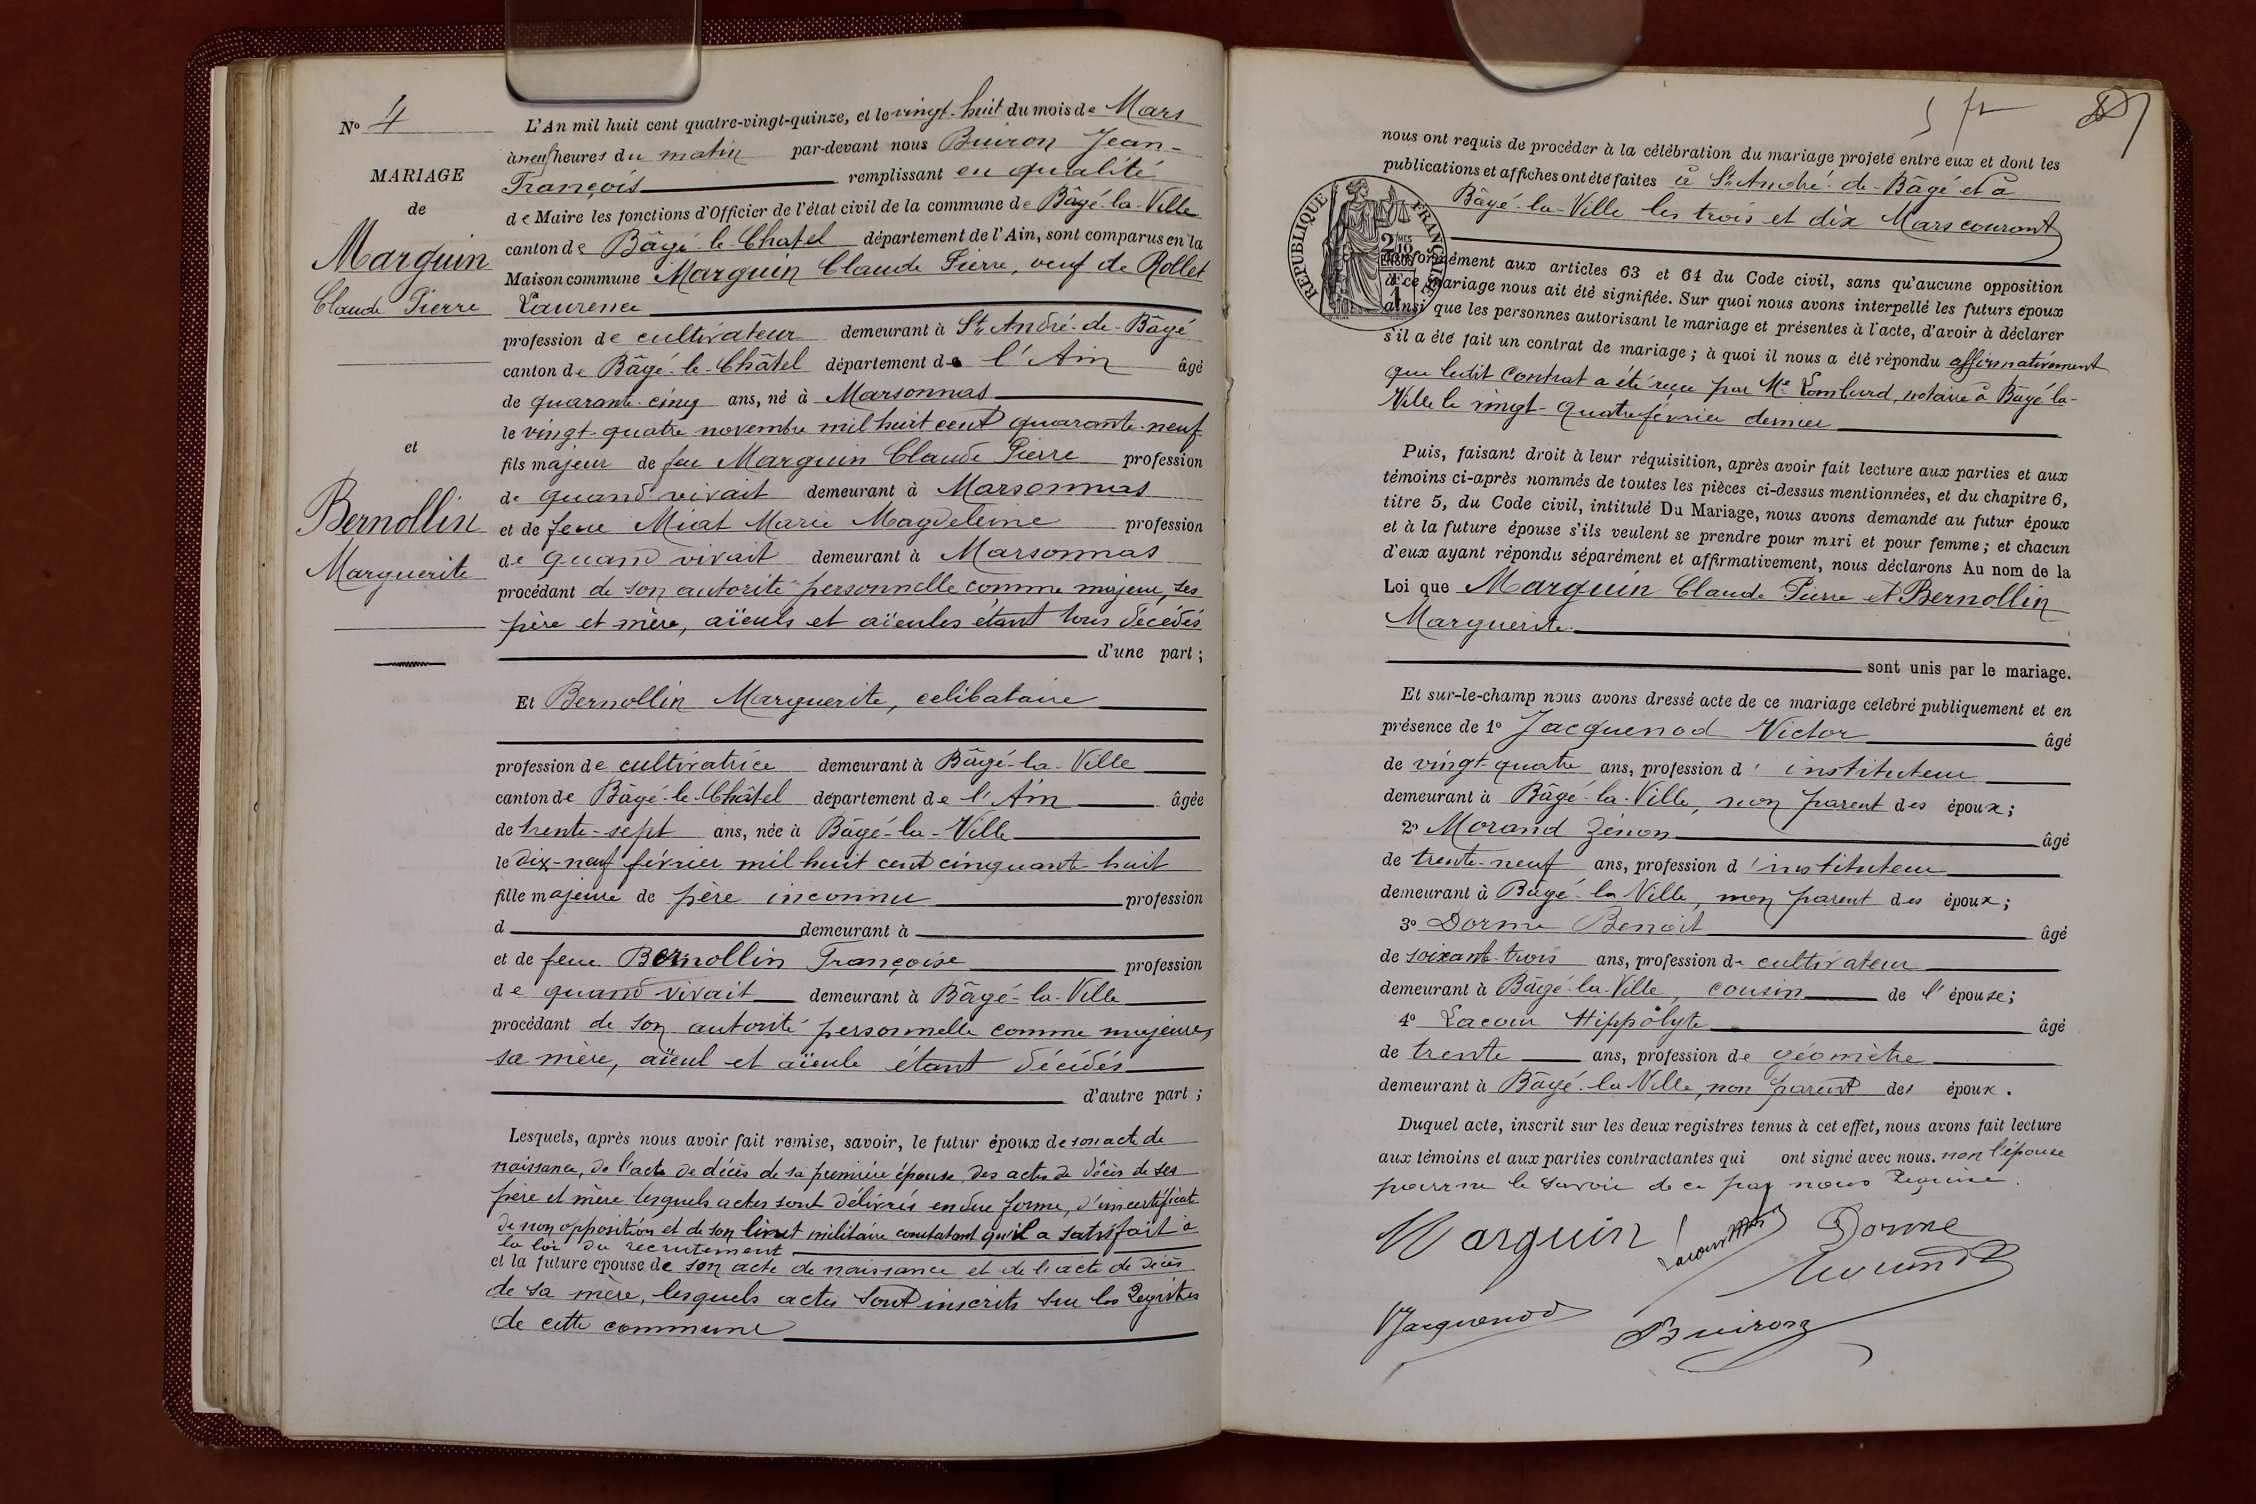 Nº 4
MARIAGE
de
Marguin
Claude Pierre
et
Bernollin
Marguerite
L'An mil huit cent quatre-vingt-quinze, et le vingt-huit du mois de Mars
à neuf heures du matin par-devant nous Buiron Jean-
François remplissant en qualité
de Maire les fonctions d'Officier de l'état civil de la commune de Bâgé-la-Ville
canton de Bâgé-le-Chatel département de l'Ain, sont comparus en la
Maison commune Marguin Claude Pierre, veuf de Rollet
Laurence
profession de cultivateur demeurant à St André-de-Bâgé
canton de Bâgé-le-Châtel département de l'Ain âgé
de quarante-cinq ans, né à Marsonnas
le vingt-quatre novembre mil huit cent quarante-neuf
fils majeur de feu Marguin Claude Pierre profession
de quand vivait demeurant à Marsonnas
et de feue Miat Marie Magdeleine profession
de quand vivait demeurant à Marsonnas
procédant de son autorité personnelle comme majeur, ses
père et mère, aïeuls et aïeules étant tous décédés
d'une part ;
Et Bernollin Marguerite, celibataire
profession de cultivatrice demeurant à Bâgé-la-Ville
canton de Bâgé-le-Châtel département de l'Ain âgée
de trente-sept ans, née à Bâgé-la-Ville
le dix-neuf février mil huit cent cinquante-huit
fille majeure de père inconnu profession
d demeurant à
et de feue Bernollin Françoise profession
de quand vivait demeurant à Bâgé-la-Ville
procédant de son autorité personnelle comme majeure,
sa mère, aïeul et aïeule étant décédés
d'autre part ;
Lesquels, après nous avoir fait remise, savoir, le futur époux de son acte de
naissance, de l'acte de décès de sa première épouse, des actes de décès de ses
père et mère lesquels actes sont délivrés en due forme, d'un certificat
de non opposition et de son livret militaire constatant qu'il a satisfait à
la loi du recrutement
et la future epouse de son acte de naissance et de l'acte de décès
de sa mère, lesquels actes sont inscrits sur les Registres
de cette commune
5 fr
nous ont requis de procéder à la célébration du mariage projeté entre eux et dont les
publications et affiches ont été faites à St André-de-Bâgé et à
Bâgé-la-Ville les trois et dix Mars courant
REPUBLIQUE FRANÇAISE
2 mes 10 EN SUS
1 F
conformément aux articles 63 et 64 du Code civil, sans qu'aucune opposition
à ce mariage nous ait été signifiée. Sur quoi nous avons interpellé les futurs époux
ainsi que les personnes autorisant le mariage et présentes à l'acte, d'avoir à déclarer
s'il a été fait un contrat de mariage ; à quoi il nous a été répondu affirmativement
que ledit contrat a été reçu par Me Lombard, notaire à Bâgé-la-
Ville le vingt-quatre février dernier
Puis, faisant droit à leur réquisition, après avoir fait lecture aux parties et aux
témoins ci-après nommés de toutes les pièces ci-dessus mentionnées, et du chapitre 6,
titre 5, du Code civil, intitulé Du Mariage, nous avons demandé au futur époux
et à la future épouse s'ils veulent se prendre pour mari et pour femme ; et chacun
d'eux ayant répondu séparément et affirmativement, nous déclarons Au nom de la
Loi que Marguin Claude Pierre et Bernollin
Marguerite
sont unis par le mariage.
Et sur-le-champ nous avons dressé acte de ce mariage célébré publiquement et en
présence de 1º Jacquenod Victor âgé
de vingt-quatre ans, profession d'instituteur
demeurant à Bâgé-la-Ville, non parent des époux ;
2º Morand Zénon âgé
de trente-neuf ans, profession d'instituteur
demeurant à Bâgé-la-Ville, non parent des époux ;
3º Dorme Benoit âgé
de soixante-trois ans, profession de cultivateur
demeurant à Bâgé-la-Ville, cousin de l'épouse ;
4º Lacour Hippolyte âgé
de trente ans, profession de géomètre
demeurant à Bâgé-la-Ville, non parent des époux.
Duquel acte, inscrit sur les deux registres tenus à cet effet, nous avons fait lecture
aux témoins et aux parties contractantes qui ont signé avec nous. non l'épouse
pour ne le savoir de ce par nous Requise.
Marguin Lacour Dorme
Morand
Jacquenod Buiron